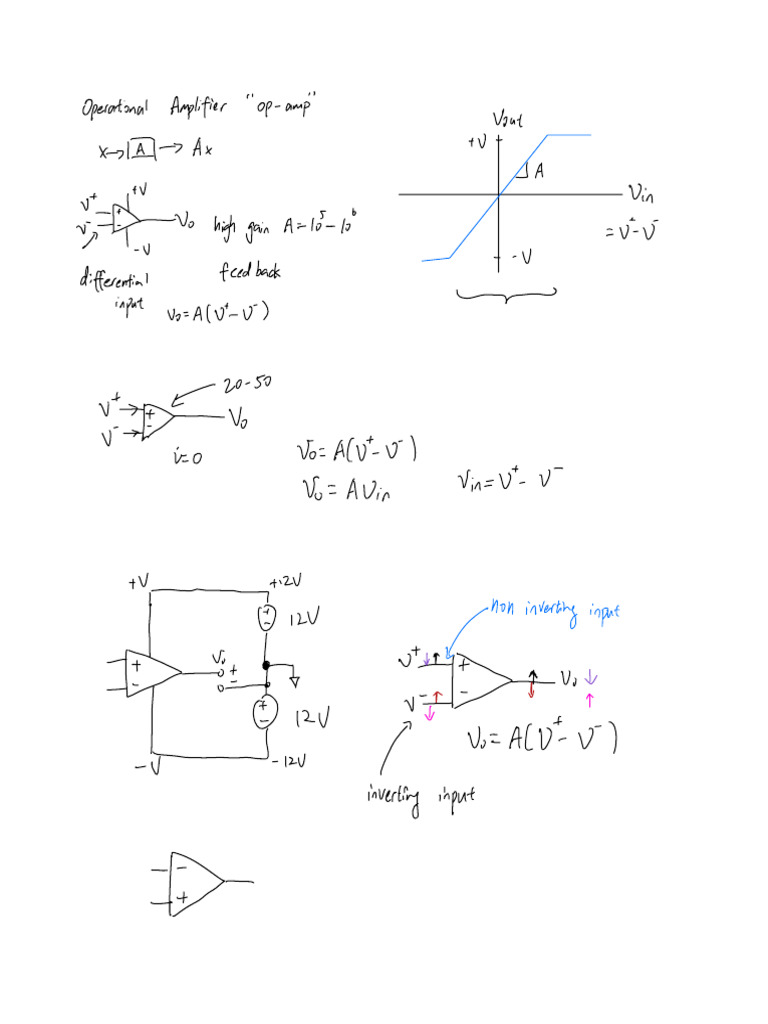 Operational Amplifier "op-amp"
x→ A → Ax
V⁺ + +V
V⁻ - Vo
-V
high gain A = 10⁵ - 10⁶
differential
input
feedback
Vo = A(V⁺ - V⁻)
Vout
+V
A
Vin
= V⁺ - V⁻
-V
20-50
V⁺ +
V⁻ - Vo
i=0
Vo = A(V⁺ - V⁻)
Vo = A Vin
Vin = V⁺ - V⁻
+V +12V
+ - 12V
+ - Vo + -
+ - 12V
-V -12V
non inverting input
V⁺ +
V⁻ - Vo
Vo = A(V⁺ - V⁻)
inverting input
-
+